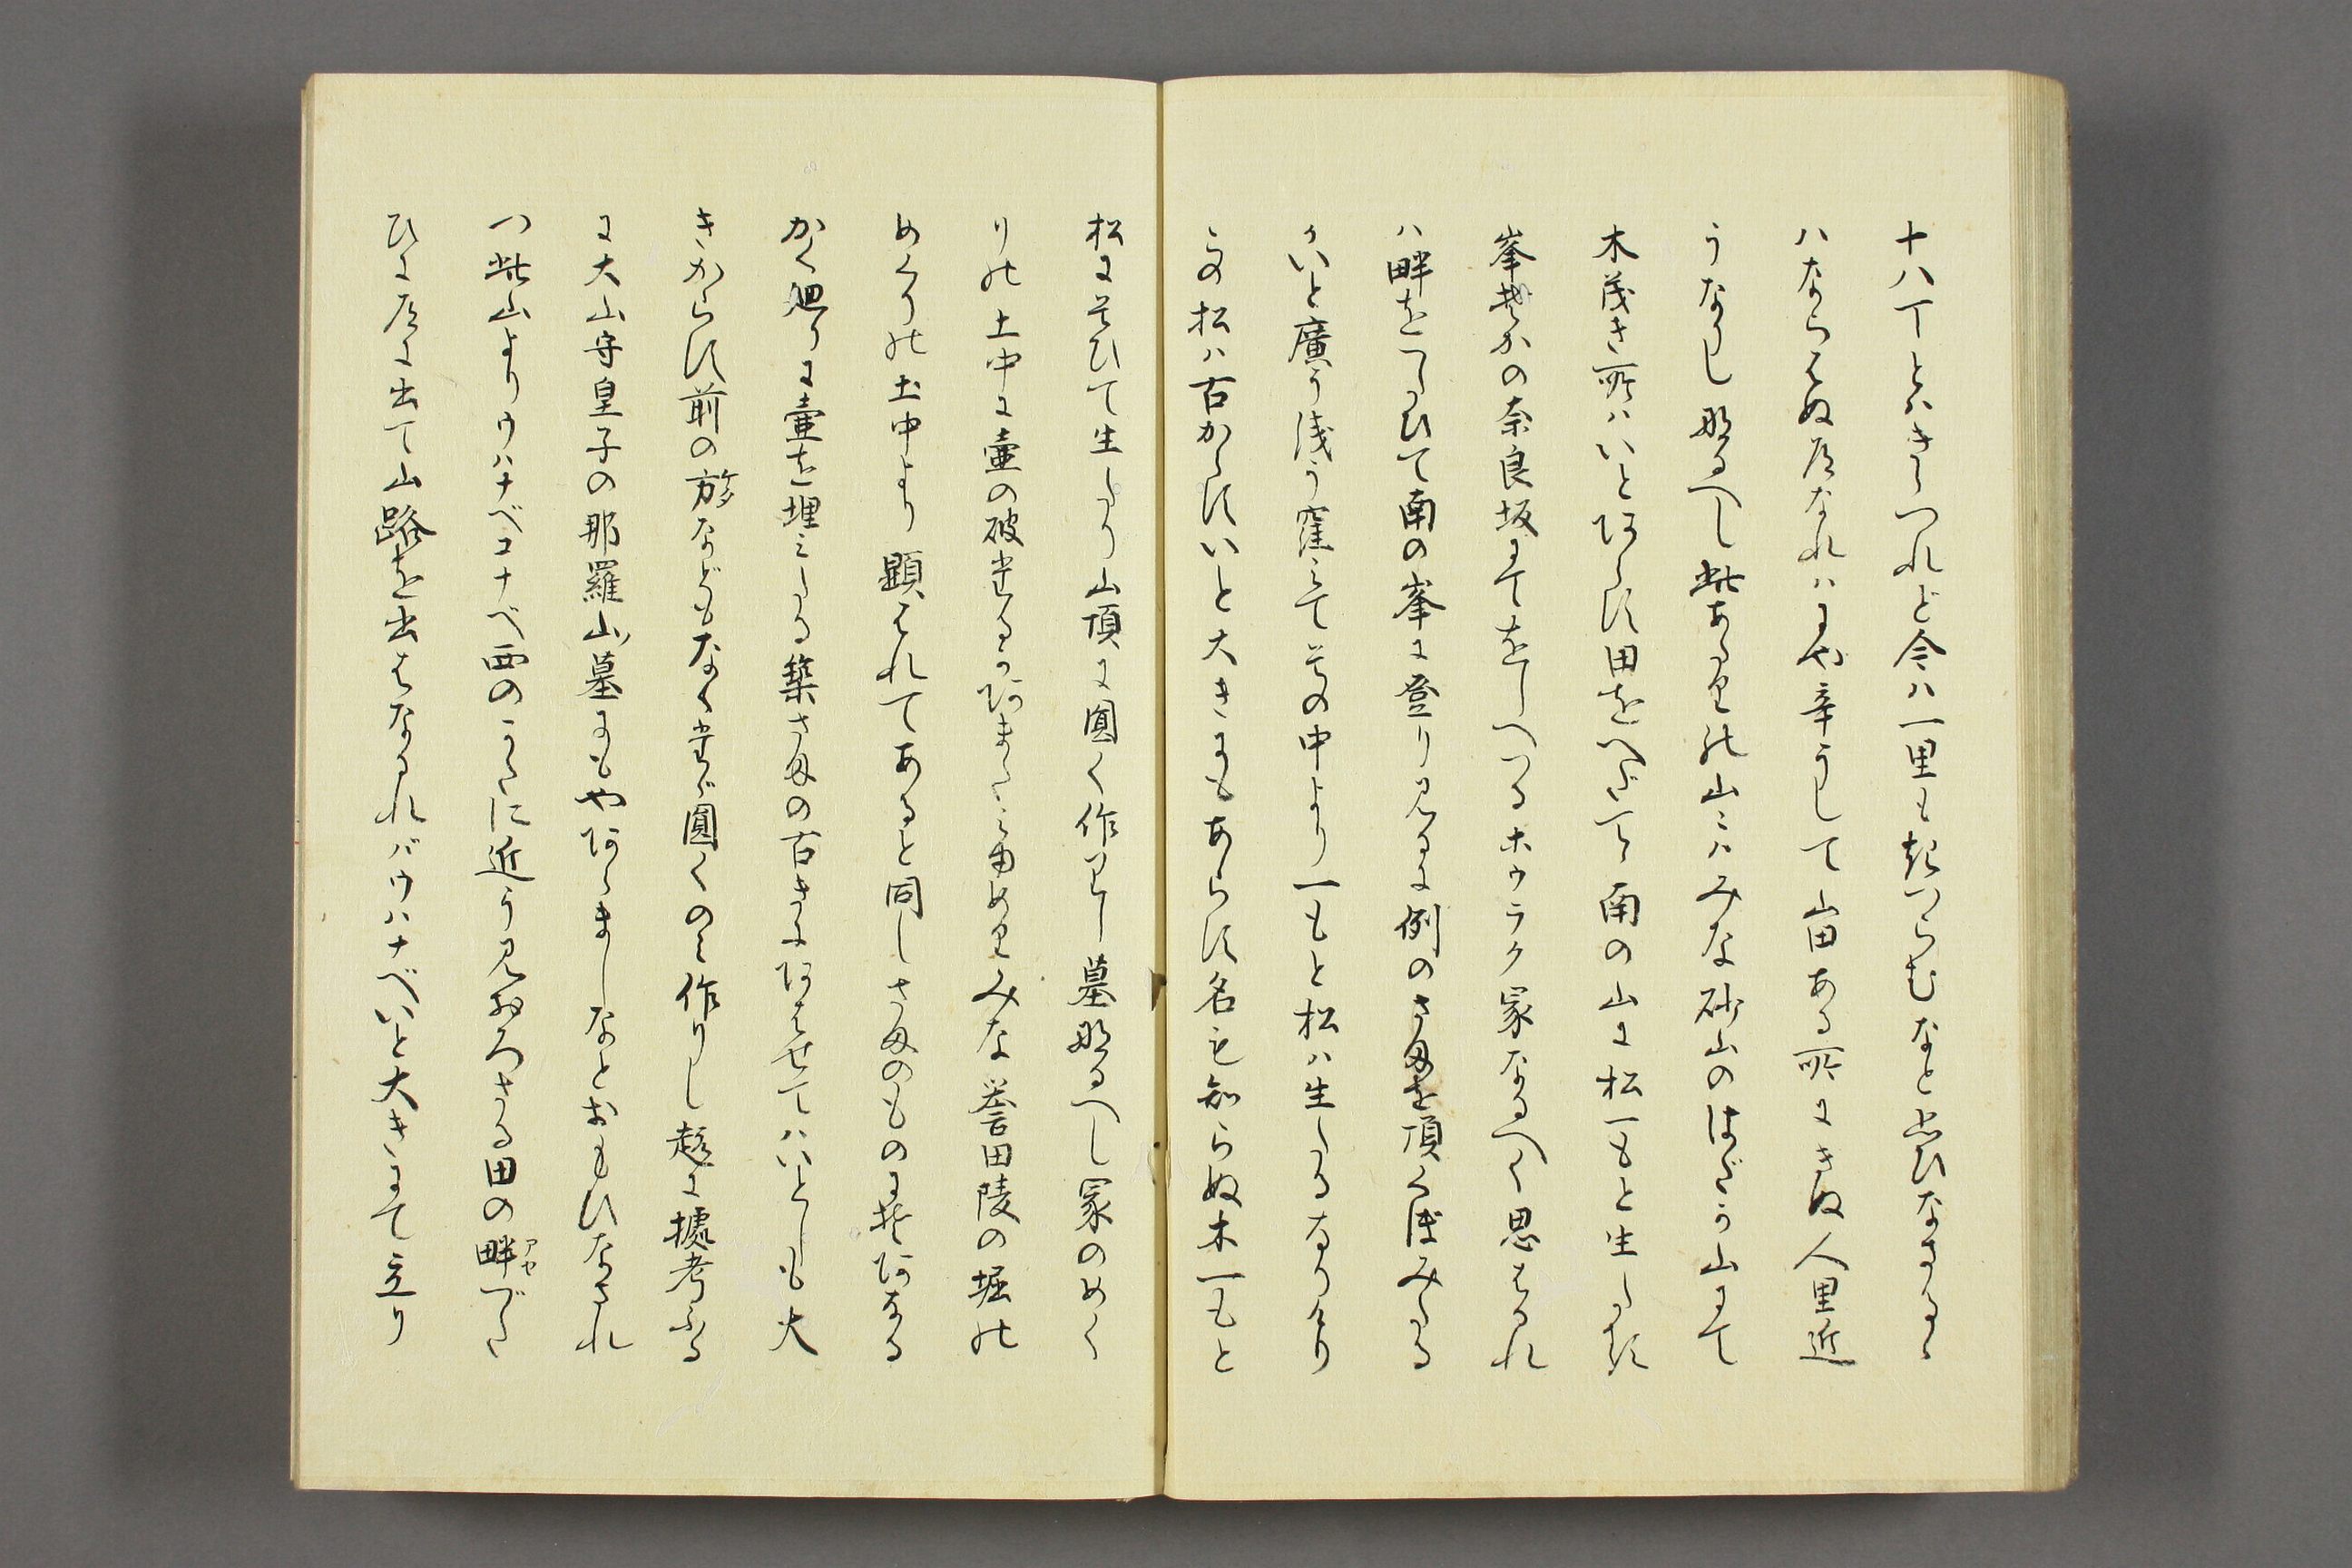 十八丁とはきゝつれど今ハ一里も越つらむなと思ひなさるゝ
ハならはぬ道なれハにや辛うして山田ある所にきぬ人里近
うなりし那るへし此あたりの山々ハみな砂山のはだか山にて
木茂き所ハいと阿らす田をへだてゝ南の山に松一もと生たる
峯そかの奈良坂にてをしへつるホウラク冢なるへく思はるれ
ハ畔をつたひて南の峯に登り見るに例のさまを頂くぼみたる
かいと廣う浅う窪みて其の中より一もと松ハ生たるなりけり
この松ハ古からすいと大きにもあらす名も知らぬ木一もと
松にそひて生たり山頂に圓く作りし墓那るへし冢のめく
りの土中に壷の破たるか阿またみ由めりみな誉田陵の堀の
めくりの土中より顕はれてあると同しさまのものにそ阿なる
かく廻りに壷を埋みたる築さまの古きに阿はせてハいとしも大
きからす前の方などもなくたゞ圓くのミ作りし趣に據考ふる
に大山守皇子の那羅山墓にもや阿らましなとおもひなされ
つ此山よりウハナベコナベ西のかたに近う見おろさる田の畔アセづた
ひに道に出て山路を出はなるれバウハナベいと大きにて立り